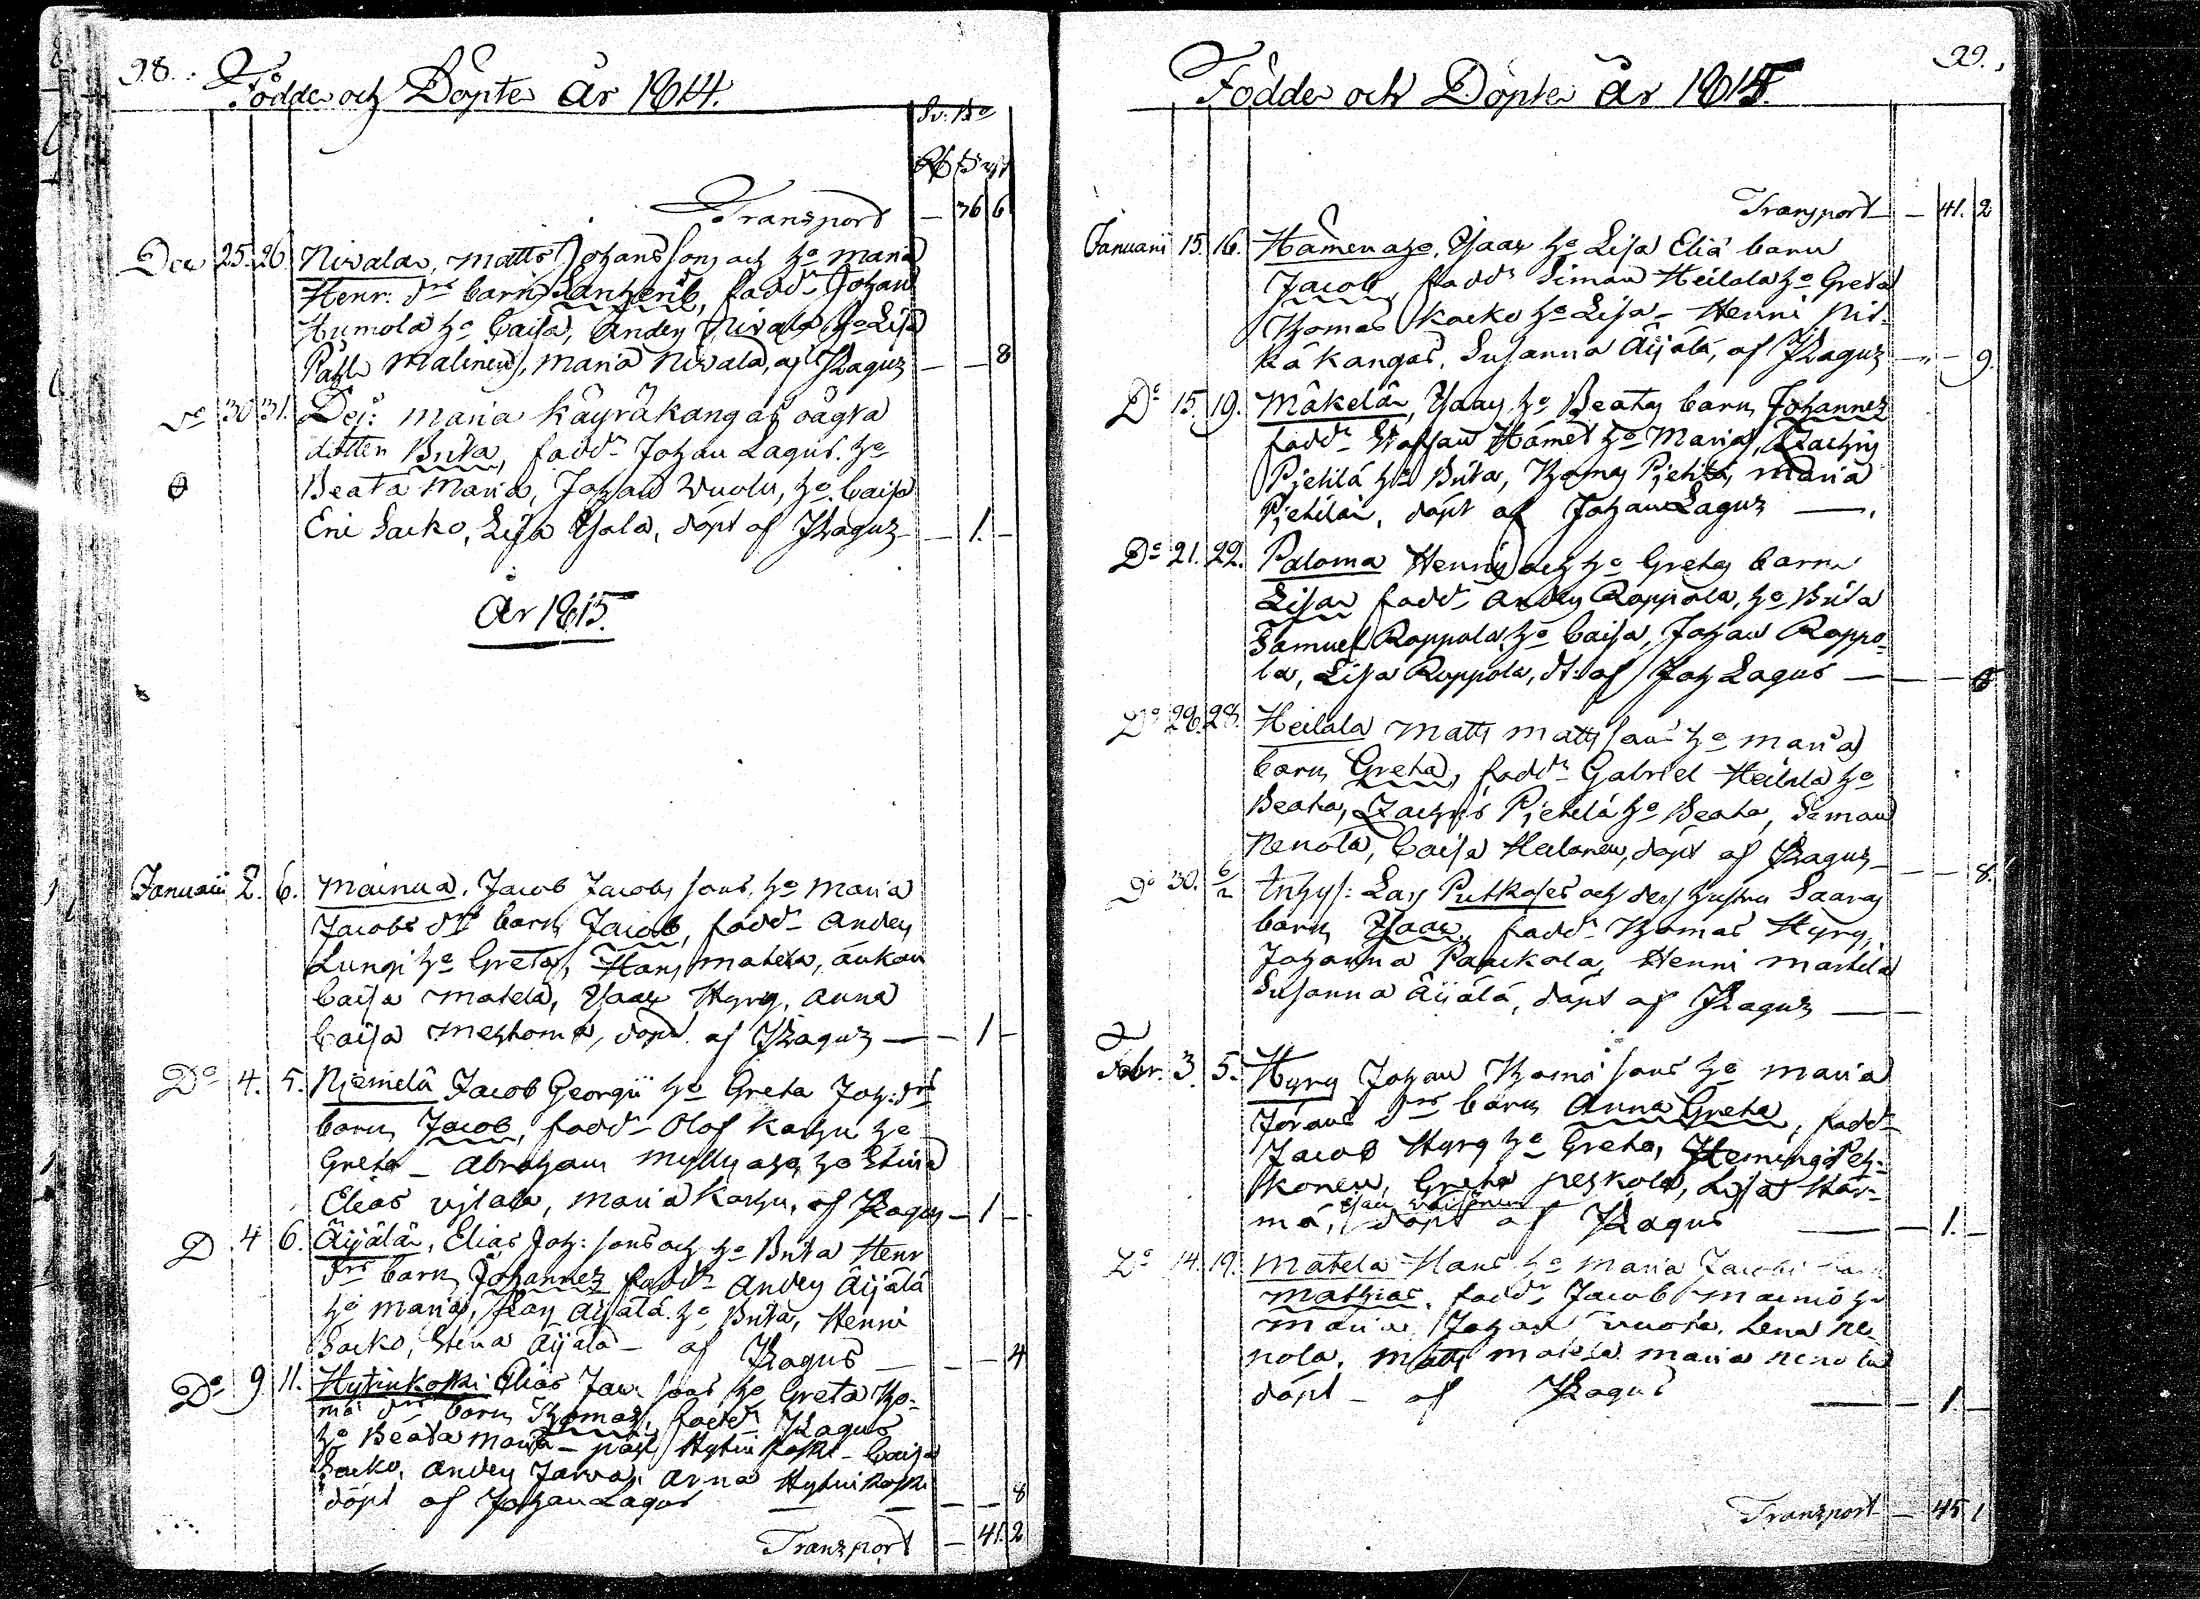 98.
Födde och Döpte År 1814.
Sv: B:o
Rd ß rst
Transport — 36 6
Dec 25. 26. Nivala, Matts Johansson och h:o Maria
Henr: d:rs barn, fadd:r Johan
Humola h:o Caisa, Anders Nivala h:o Lisa
Påhl Malinen, Maria Nivala, af JLagus — — 8
D:o 30 31. Pig: Maria Käyräkangas oägta
dotter Brita, fadd:r Johan Lagus h:o
Beata Maria, Johan Wuolu, h:o Caisa
Eric Sacko, Lisa Ysola, döpt af JLagus — 1. —
År 1815.
Januarii 2. 6. Mainua, Jacob Jacobs sons h:o Maria
Jacobs d:rs barn Jacob, fadd:r Anders
Lungi h:o Greta, Hans Matela, änkan
Caisa Matela, Isaac Hyry, Anna
Caisa, döpt af JLagus — — 1 —
D:o 4. 5. Njemelä Jacob Georgii h:o Greta Joh: d:rs
barn Jacob, fadd:r Olof Karhu h:o
Greta — Abraham Myllyaho h:o Stina
Elias, Maria Karhu, af JLagus — 1 —
D 4 6. Äijälä, Elias Joh: sons och h:o Brita Henr
d:rs barn Johannes fadd:r Anders Äijälä
h:o Maria, Lars Äijälä h:o Brita, Henric
Sacko, Stina Äijälä — af JLagus — — — 4
D:o 9 11. Hytinkoski Elias Jac: sons h:o Greta Tho-
mæ d:rs barn Thomas, fadd:r JLagus
h:o Beata Maria — Påhl Hytinkoski — Caisa
Sacko, Anders Jarva, Anna Hytinkoski
döpt af Johan Lagus — — — 8
Transport — 41. 2
99.
Födde och Döpte år 1815.
Transport — — 41. 2
Januarii 15. 16. Hämenaho, Isaac h:o Lisa Eliæ barn
Jacob fadd:r Simon Heilala h:o Greta
Thomas Kacko h:o Lisa — Henric Pit-
käkangas, Susanna Äijälä, af JLagus — — 9.
D:o 15. 19. Mäkelä, Isaac h:o Beatæ barn Johannes
fadd:r Staffan Hämet h:o Maria, Zachris
Pjetilä h:o Brita, Thomas Pjetilä, Maria
Pjetilä, döpt af Johan Lagus —
D:o 21. 22. Paloma Henric och h:o Gretæ barn
Lisa fadd:r Anders Roppola, h:o Brita
Samuel Roppola h:o Caisa, Johan Roppo-
la, Lisa Roppola, dt: af Joh Lagus — — — 8
D:o 28. 28. Heilala Matts Matts sons h:o Maria
barn Greta, fadd:r Gabriel Heilala h:o
Beata, Zachris Pjetilä h:o Beata, Simon
Nenola, Caisa Heilanen, döpt af JLagus — — — 8.
D:o 30. 6/2 Inhys: Lars Putkoses och des hustru Saaras
barn Isaac, fadd:r Thomas Hyry,
Johanna Paackola, Henric Martila
Susanna Äijälä, döpt af JLagus — —
Febr. 3. 5. Hyry Johan Thomæ sons h:o Maria
Jörans d:rs barn Anna Greta, fadd:r
Jacob Hyry h:o Greta, Heming Peh-
konen, Greta Peskola, Lisa Här-
mä, döpt af JLagus — — 1. —
D:o 14. 19. Matela Hans h:o Maria Jacobi barn
Mathias, fadd:r Jacob Mainio h:o
Maria, Johan Vuoto, Lena Ne-
nola, Matts Matela, Maria Nenola
döpt — af JLagus — — 1. —
Transport — 45 1